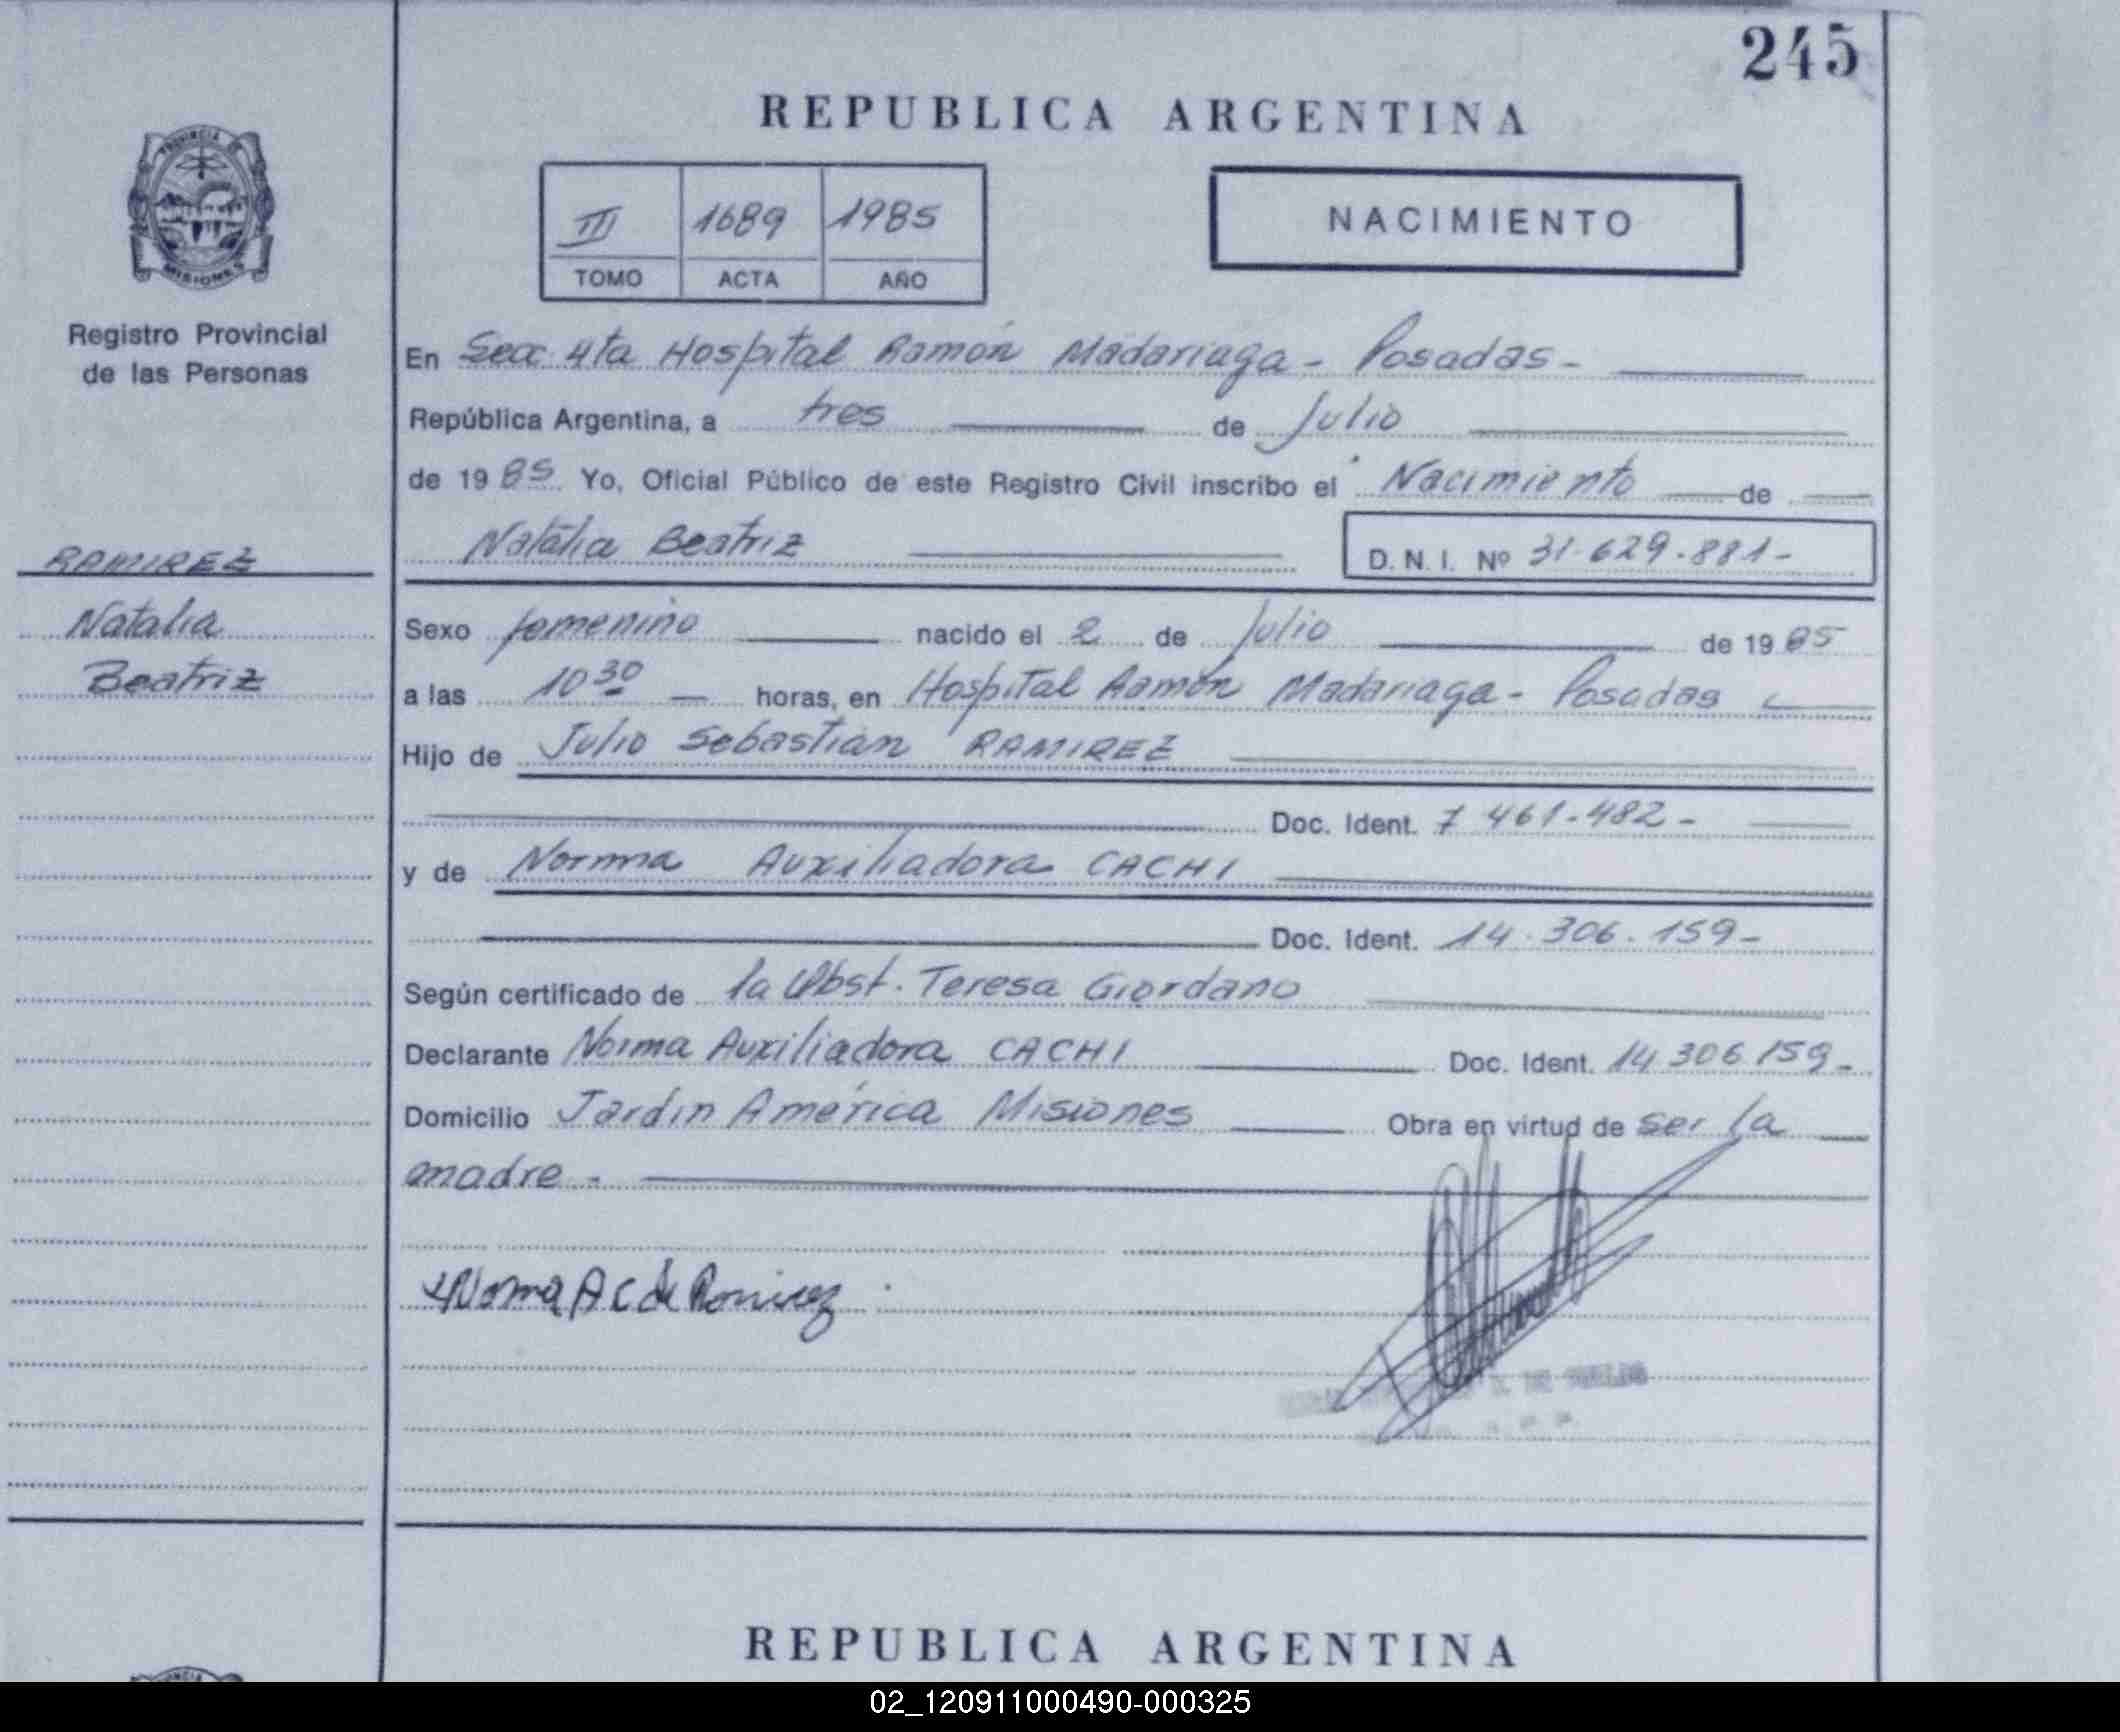 245
REPUBLICA ARGENTINA
PROVINCIA DE
MISIONES
Registro Provincial
de las Personas
III 1689 1985
TOMO ACTA AÑO
NACIMIENTO
En Secc. 4ta Hospital Ramón Madariaga - Posadas -
República Argentina, a tres de Julio
de 1985 Yo, Oficial Público de este Registro Civil inscribo el Nacimiento de
Natalia Beatriz D. N. I. Nº 31.629.881-
RAMIREZ
Natalia
Beatriz
Sexo femenino nacido el 2 de Julio de 1985
a las 10 30 horas, en Hospital Ramón Madariaga - Posadas
Hijo de Julio Sebastian RAMIREZ
Doc. Ident. 7 461.482-
y de Norma Auxiliadora CACHI
Doc. Ident. 14.306.159-
Según certificado de la Obst. Teresa Giordano
Declarante Norma Auxiliadora CACHI Doc. Ident. 14 306 159-
Domicilio Jardin América Misiones Obra en virtud de ser la
madre -
Norma A C de Ramirez
REPUBLICA ARGENTINA
02_120911000490-000325